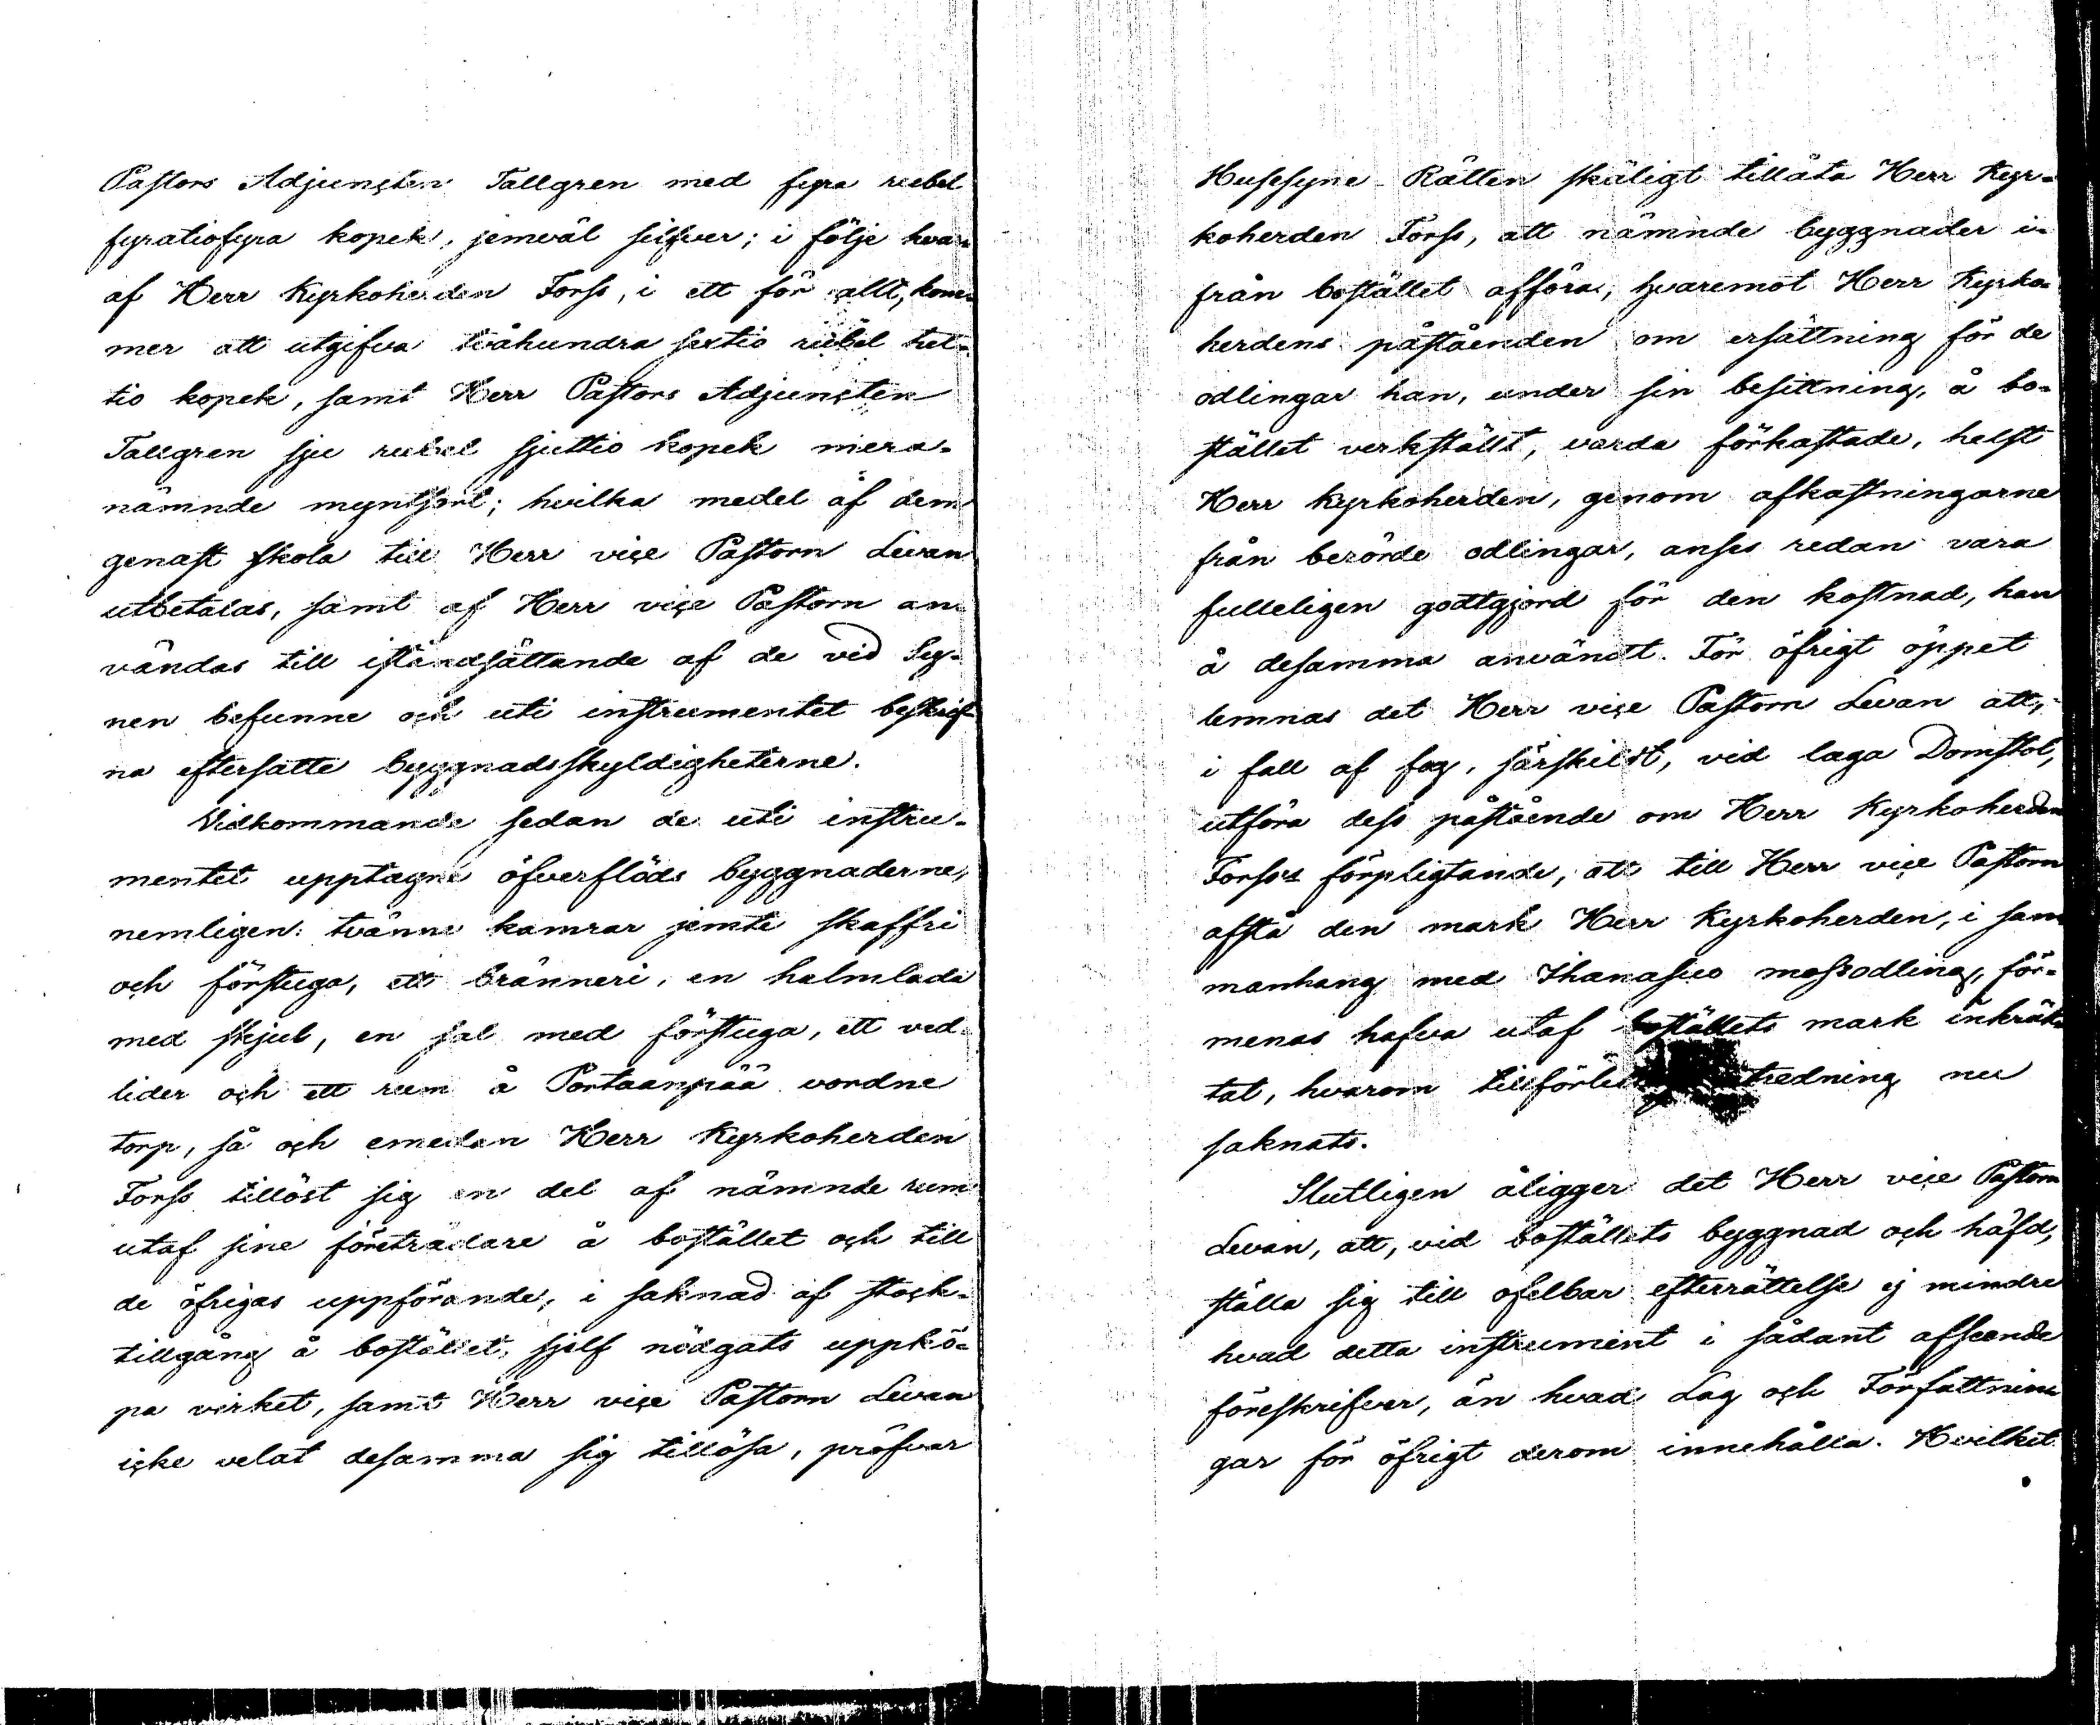 Pastors Adjuncten Tallgren med fyra rubel
fyratiofyra kopek, jemväl silfver; i följe hvar-
af Herr Kyrkoherden Forss, i ett för allt, kom-
mer att utgifva tvåhundra sextio rubel tret-
tio kopek, samt Herr Pastors Adjuncten
Tallgren sju rubel sjuttio kopek mera-
nämnde myntsort; hvilka medel af dem
genast skola till Herr vice Pastorn Levan
utbetalas, samt af Herr vice Pastorn an-
vändas till iståndsättande af de vid Sy-
nen befunne och uti instrumentet beskrif-
na eftersatte byggnadsskyldigheterne.
Vidkommande sedan de uti instru-
mentet upptagne öfverflöds byggnaderne,
nemligen: tvänne kamrar jemte skafferi
och förstuga, ett bränneri, en halmlada
med skjul, en sal med förstuga, ett ved-
lider och ett rum å Portaanpää vordne
torp, så och emedan Herr Kyrkoherden
Forss tillöst sig en del af nämnde rum
utaf sine företrädare å bostället och till
de öfrigas uppförande, i saknad af stock-
tillgång å bostället, sjelf nödgats uppkö-
pa virket, samt Herr vice Pastorn Levan
icke velat desamma sig tillösa, pröfvar
Husesyne-Rätten skäligt tillåta Herr Kyr-
koherden Forss, att nämnde byggnader i-
från bostället afföra; hvaremot Herr Kyrko-
herdens påståenden om ersättning för de
odlingar han, under sin besittning, å bo-
stället verkställt, varda förkastade, helst
Herr Kyrkoherden, genom afkastningarne
från berörde odlingar, anses redan vara
fulleligen godtgjord för den kostnad, han
å desamma användt. För öfrigt öppet
lemnas det Herr vice Pastorn Levan att,
i fall af fog, särskildt, vid laga Domstol,
utföra dess påstående om Herr Kyrkoherden
Forss's förpligtande, att till Herr vice Pastorn
afstå den mark Herr Kyrkoherden, i sam-
manhang med Ihanasuo mossodling, för-
menas hafva utaf boställets mark inkräk-
tat, hvarom utredning nu
saknats.
Slutligen åligger det Herr vice Pastorn
Levan, att, vid boställets byggnad och häfd,
ställa sig till ofelbar efterrättelse ej mindre
hvad detta instrument i sådant afseende
föreskrifver, än hvad Lag och Författnin-
gar för öfrigt derom innehålla. Hvilket